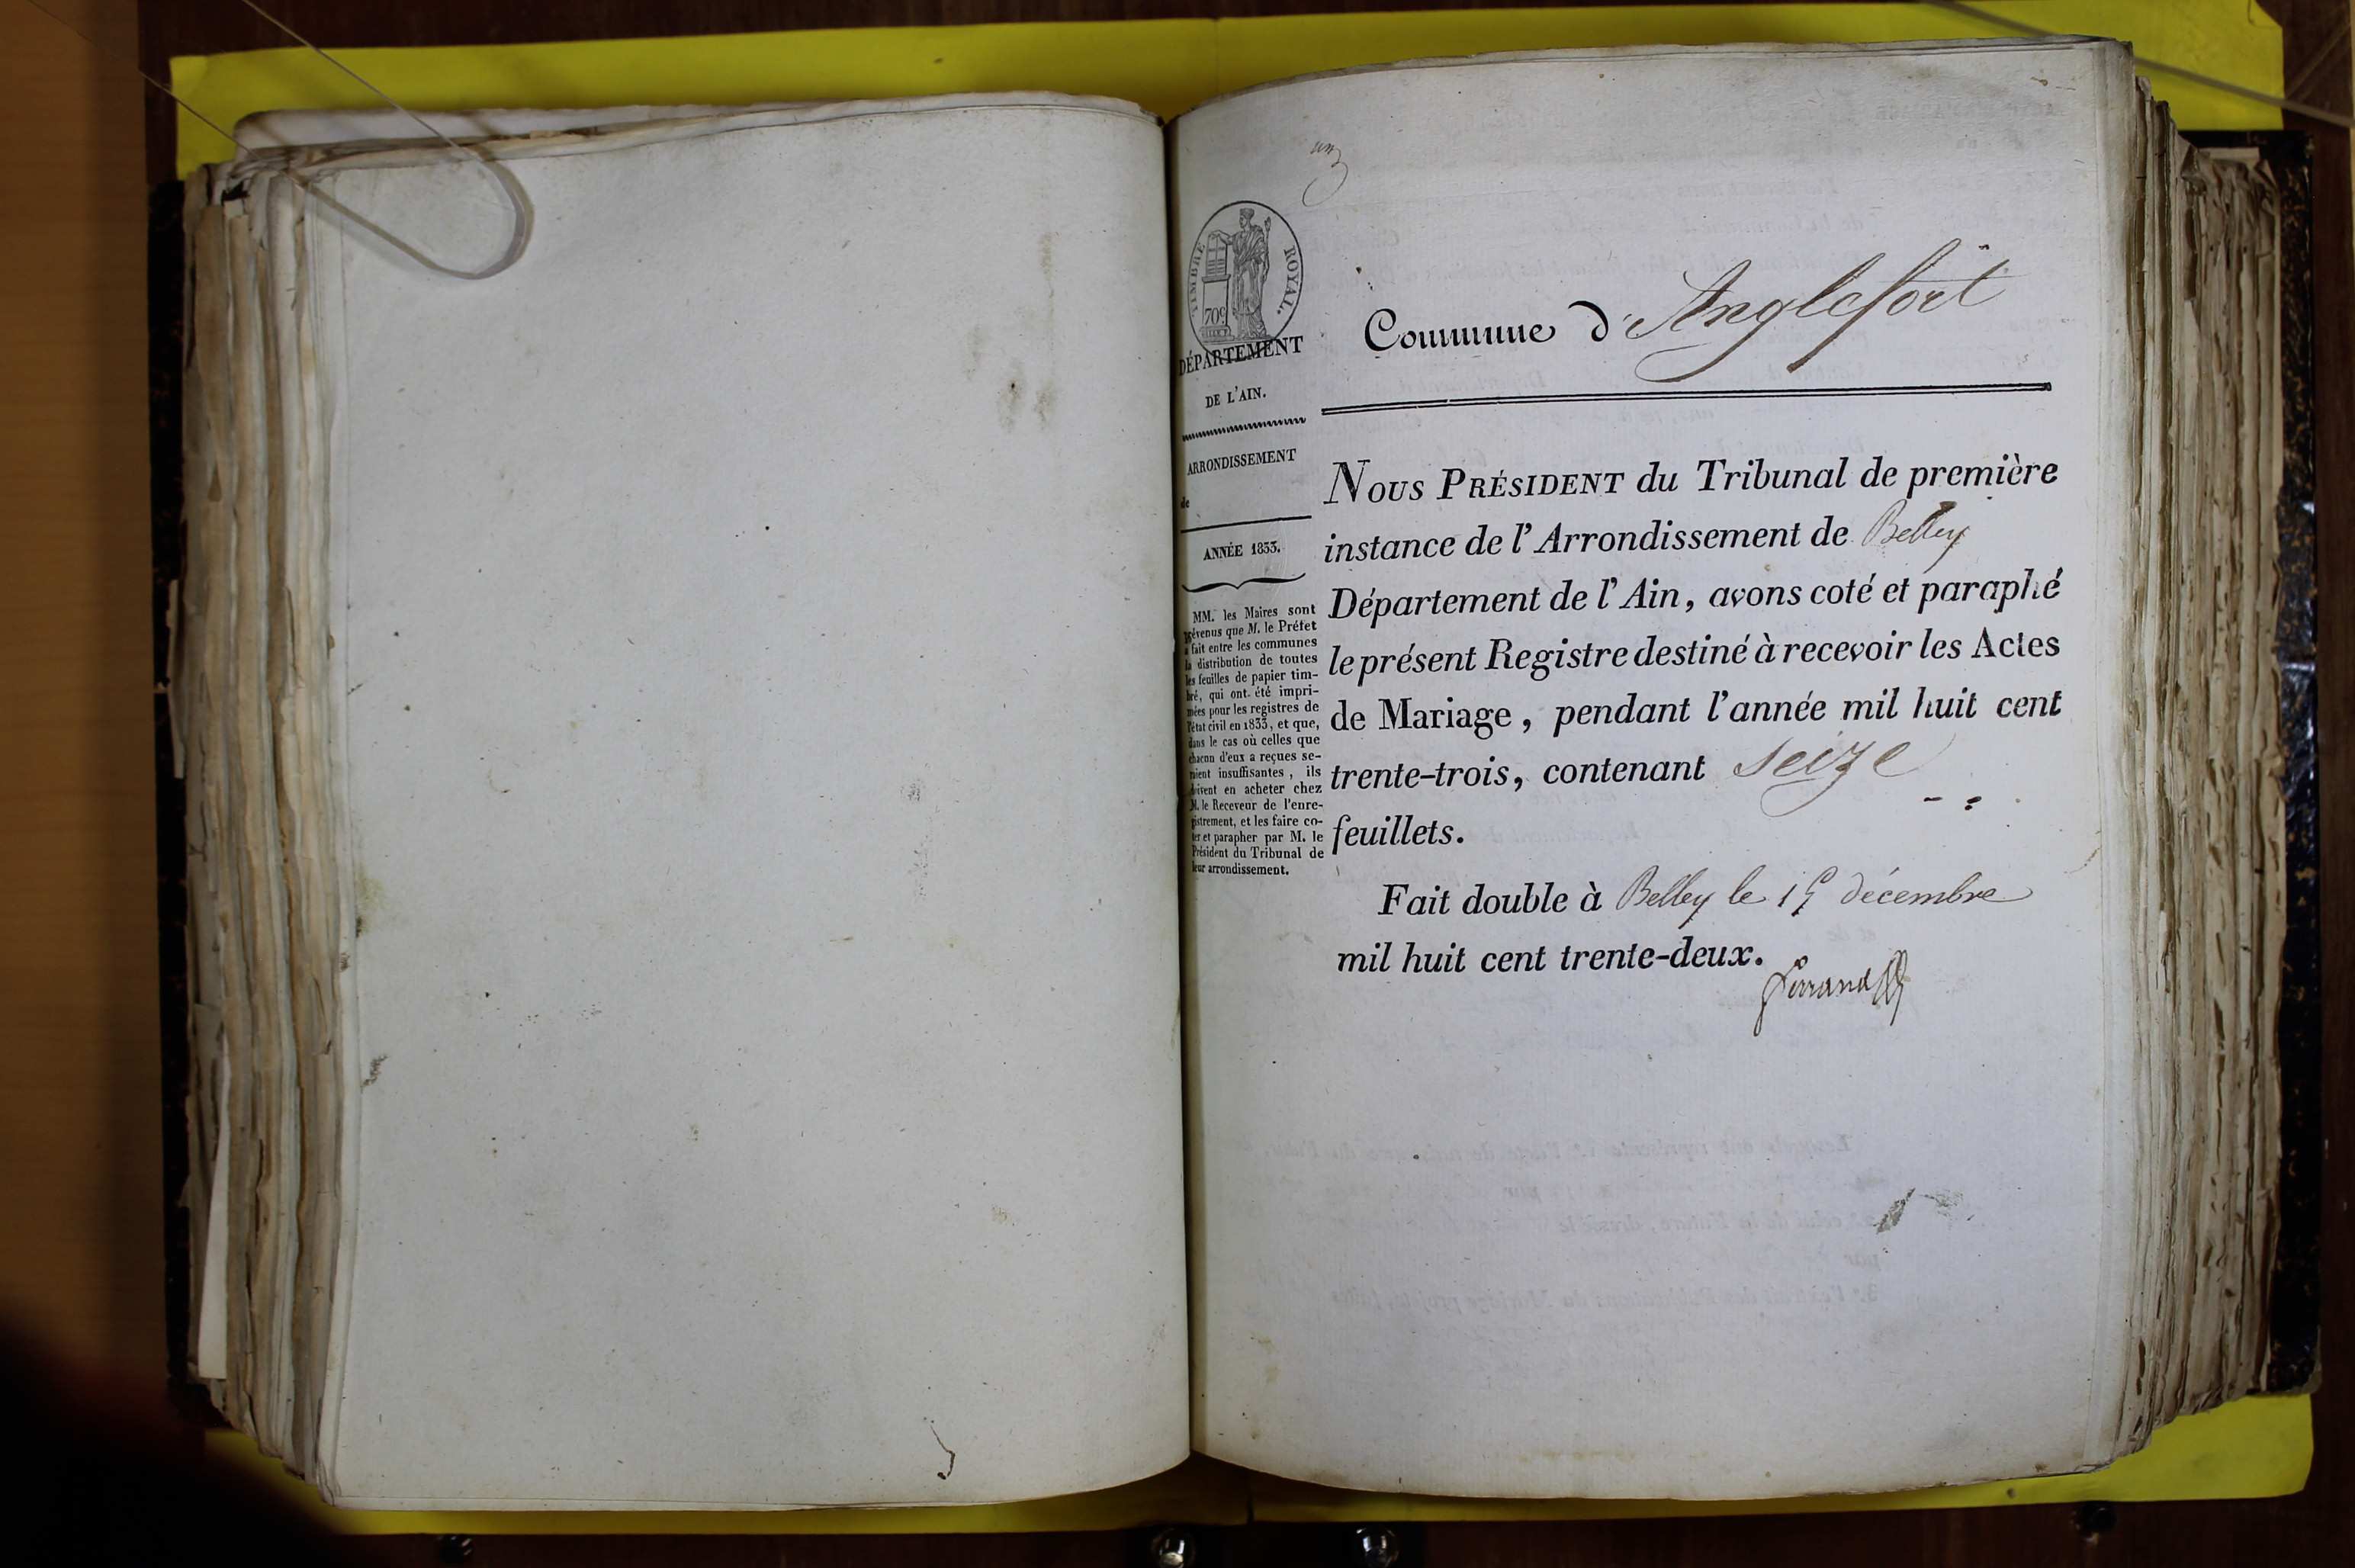 un
TIMBRE ROYAL.
70c
DÉPARTEMENT
DE L'AIN.
ARRONDISSEMENT
de
ANNÉE 1833.
MM. les Maires sont
prévenus que M. le Préfet
a fait entre les communes
la distribution de toutes
les feuilles de papier tim-
bré, qui ont été impri-
mées pour les registres de
l'état civil en 1833, et que,
dans le cas où celles que
chacun d'eux a reçues se-
raient insuffisantes, ils
doivent en acheter chez
M. le Receveur de l'enre-
gistrement, et les faire co-
ter et parapher par M. le
Président du Tribunal de
leur arrondissement.
Commune d'Anglefort
NOUS PRÉSIDENT du Tribunal de première
instance de l'Arrondissement de Belley
Département de l'Ain, avons coté et paraphé
le présent Registre destiné à recevoir les Actes
de Mariage, pendant l'année mil huit cent
trente-trois, contenant seize
feuillets.
Fait double à Belley le décembre
mil huit cent trente-deux.